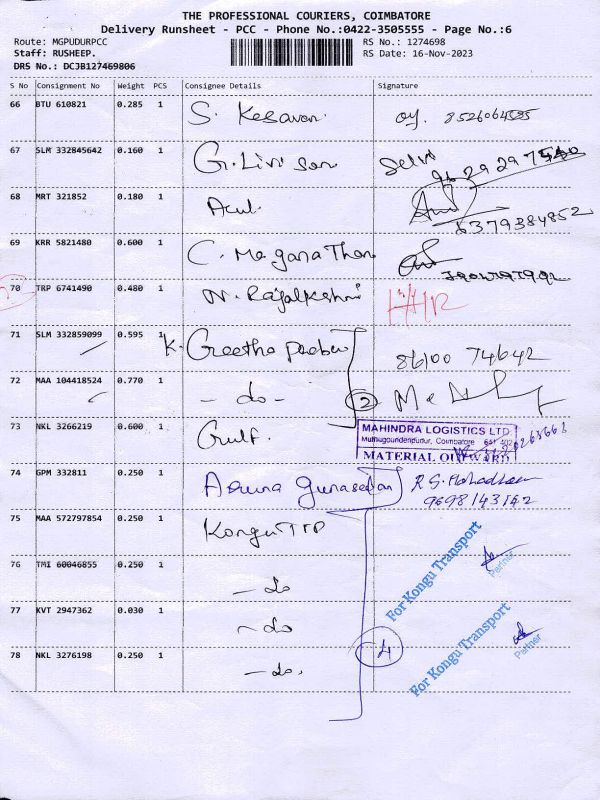 THE PROFESSIONAL COURIERS, COIMBATORE
Delivery Runsheet - PCC - Phone No.:0422-3505555 - Page No.:6
Route: MGPUDURPCC RS No.: 1274698
Staff: RUSHEEP. RS Date: 16-Nov-2023
DRS No.: DCJB127469806
S No Consignment No Weight PCS Consignee Details Signature
66 BTU 610821 0.285 1 S. Kesavan.
67 SLM 332845642 0.160 1 G. Livi son Selvi
68 MRT 321852 0.180 1 6379384852
69 KRR 5821480 0.600 1 C. Meganathan
70 TRP 6741490 0.480 1 N. Rajalkshmi
71 SLM 332859099 0.595 1 K. Geetha 86100 74642
72 MAA 104418524 0.770 1 - do - 2
73 NKL 3266219 0.600 1 Gulf.
MAHINDRA LOGISTICS LTD
Muthugoundenpudur, Coimbatore 641 402
MATERIAL OUTWARD
74 GPM 332811 0.250 1 Aruna Gunasedan
9698143142
75 MAA 572797854 0.250 1 Kongu TTP
76 TMI 60046855 0.250 1 - do
For Kongu Transport
Partner
77 KVT 2947362 0.030 1 - do
4
78 NKL 3276198 0.250 1 - do.
For Kongu Transport
Partner